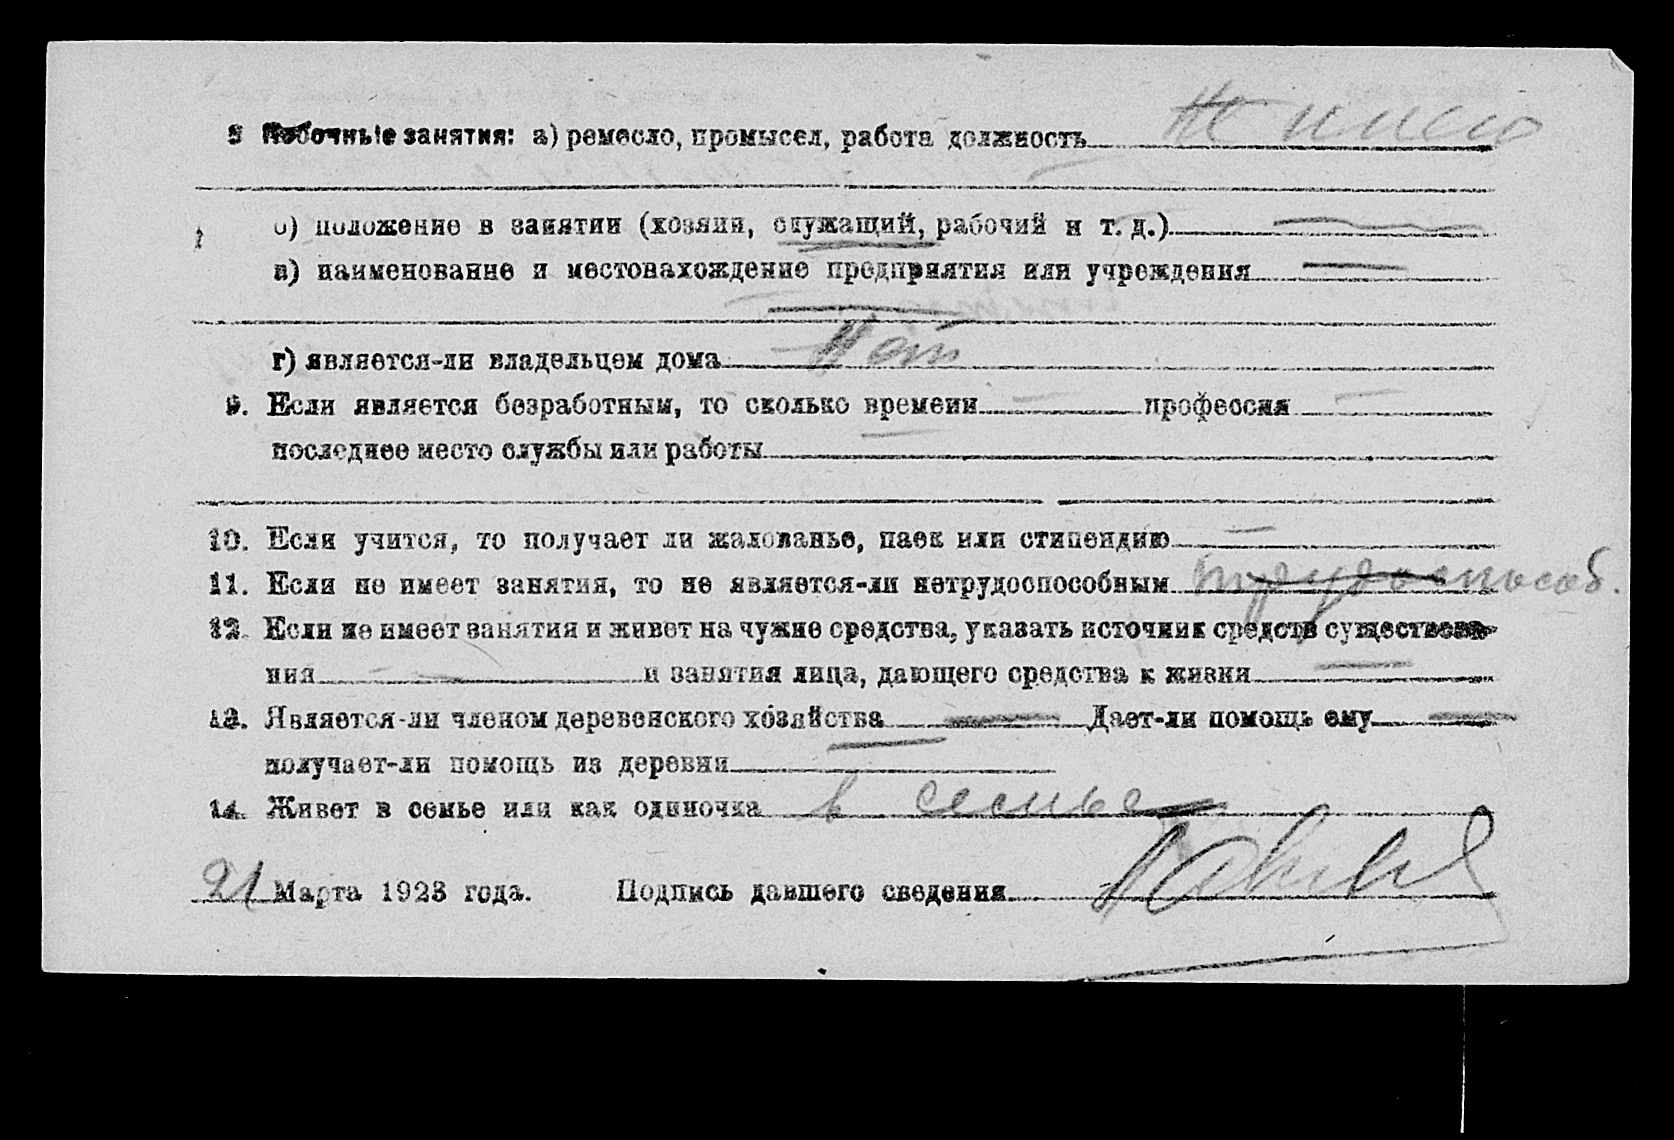 8 Побочные занятия: а) ремесло, промысел, работа должность Не имею
б) положение в занятии (хозяин, служащий, рабочий и т. д.) —
в) наименование и местонахождение предприятия или учреждения —
—
г) является-ли владельцем дома Нет
9. Если является безработным, то сколько времени — профессия —
последнее место службы или работы —
10. Если учится, то получает ли жалованье, паек или стипендию —
11. Если не имеет занятия, то не является-ли нетрудоспособным трудоспособ.
12. Если не имеет занятия и живет на чужие средства, указать источник средств существова-
ния — и занятия лица, дающего средства к жизни —
13. Является-ли членом деревенского хозяйства — Дает-ли помощь ему —
получает-ли помощь из деревни —
14. Живет в семье или как одиночка в семье
21 Марта 1923 года. Подпись давшего сведения